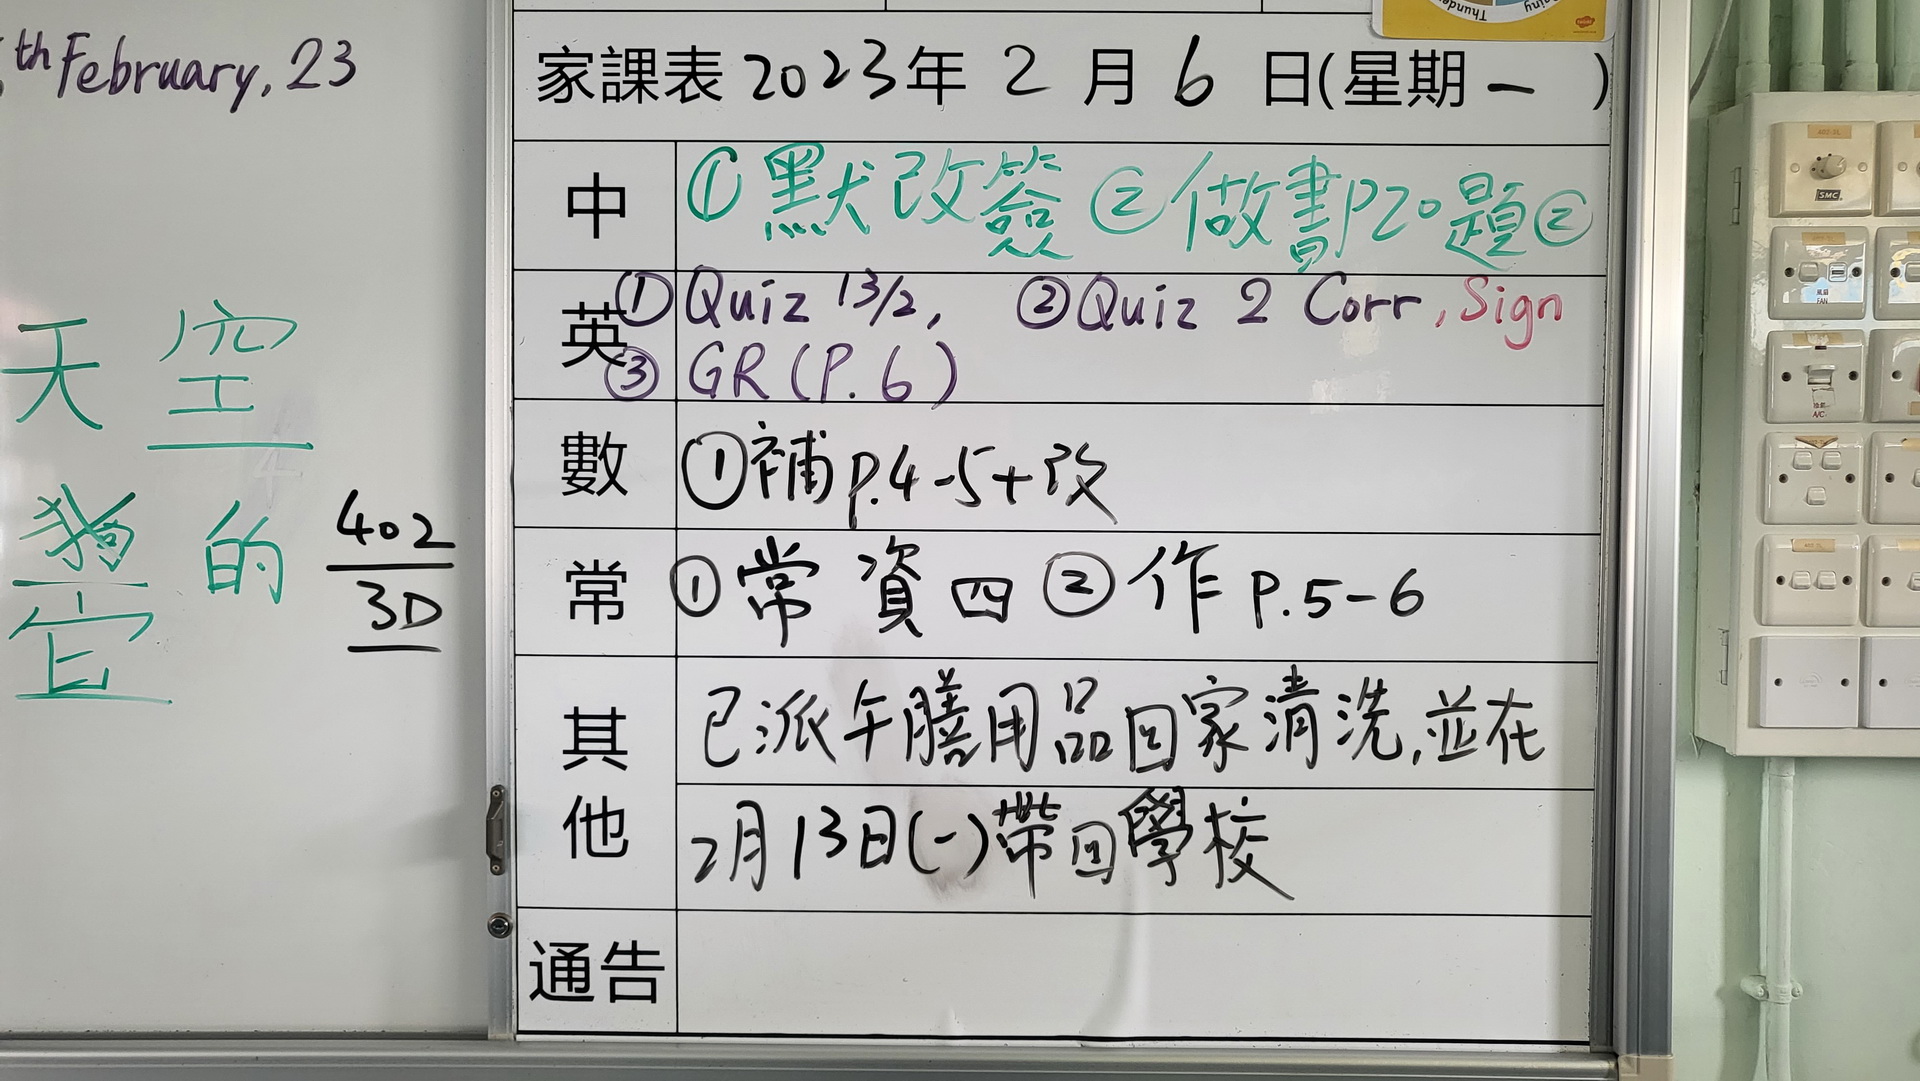 th February, 23
天空
的
它
402
3D
Thunder
家課表2023年2月6日(星期一)
中
①默改簽②做書P20題②
英
①Quiz 13/2, ②Quiz 2 Corr, Sign
③GR(P.6)
數
①補p.4-5+改
常
①常資四②作P.5-6
其他
已派午膳用品回家清洗,並在
2月13日(一)帶回學校
通告
SMC
FAN
A/C